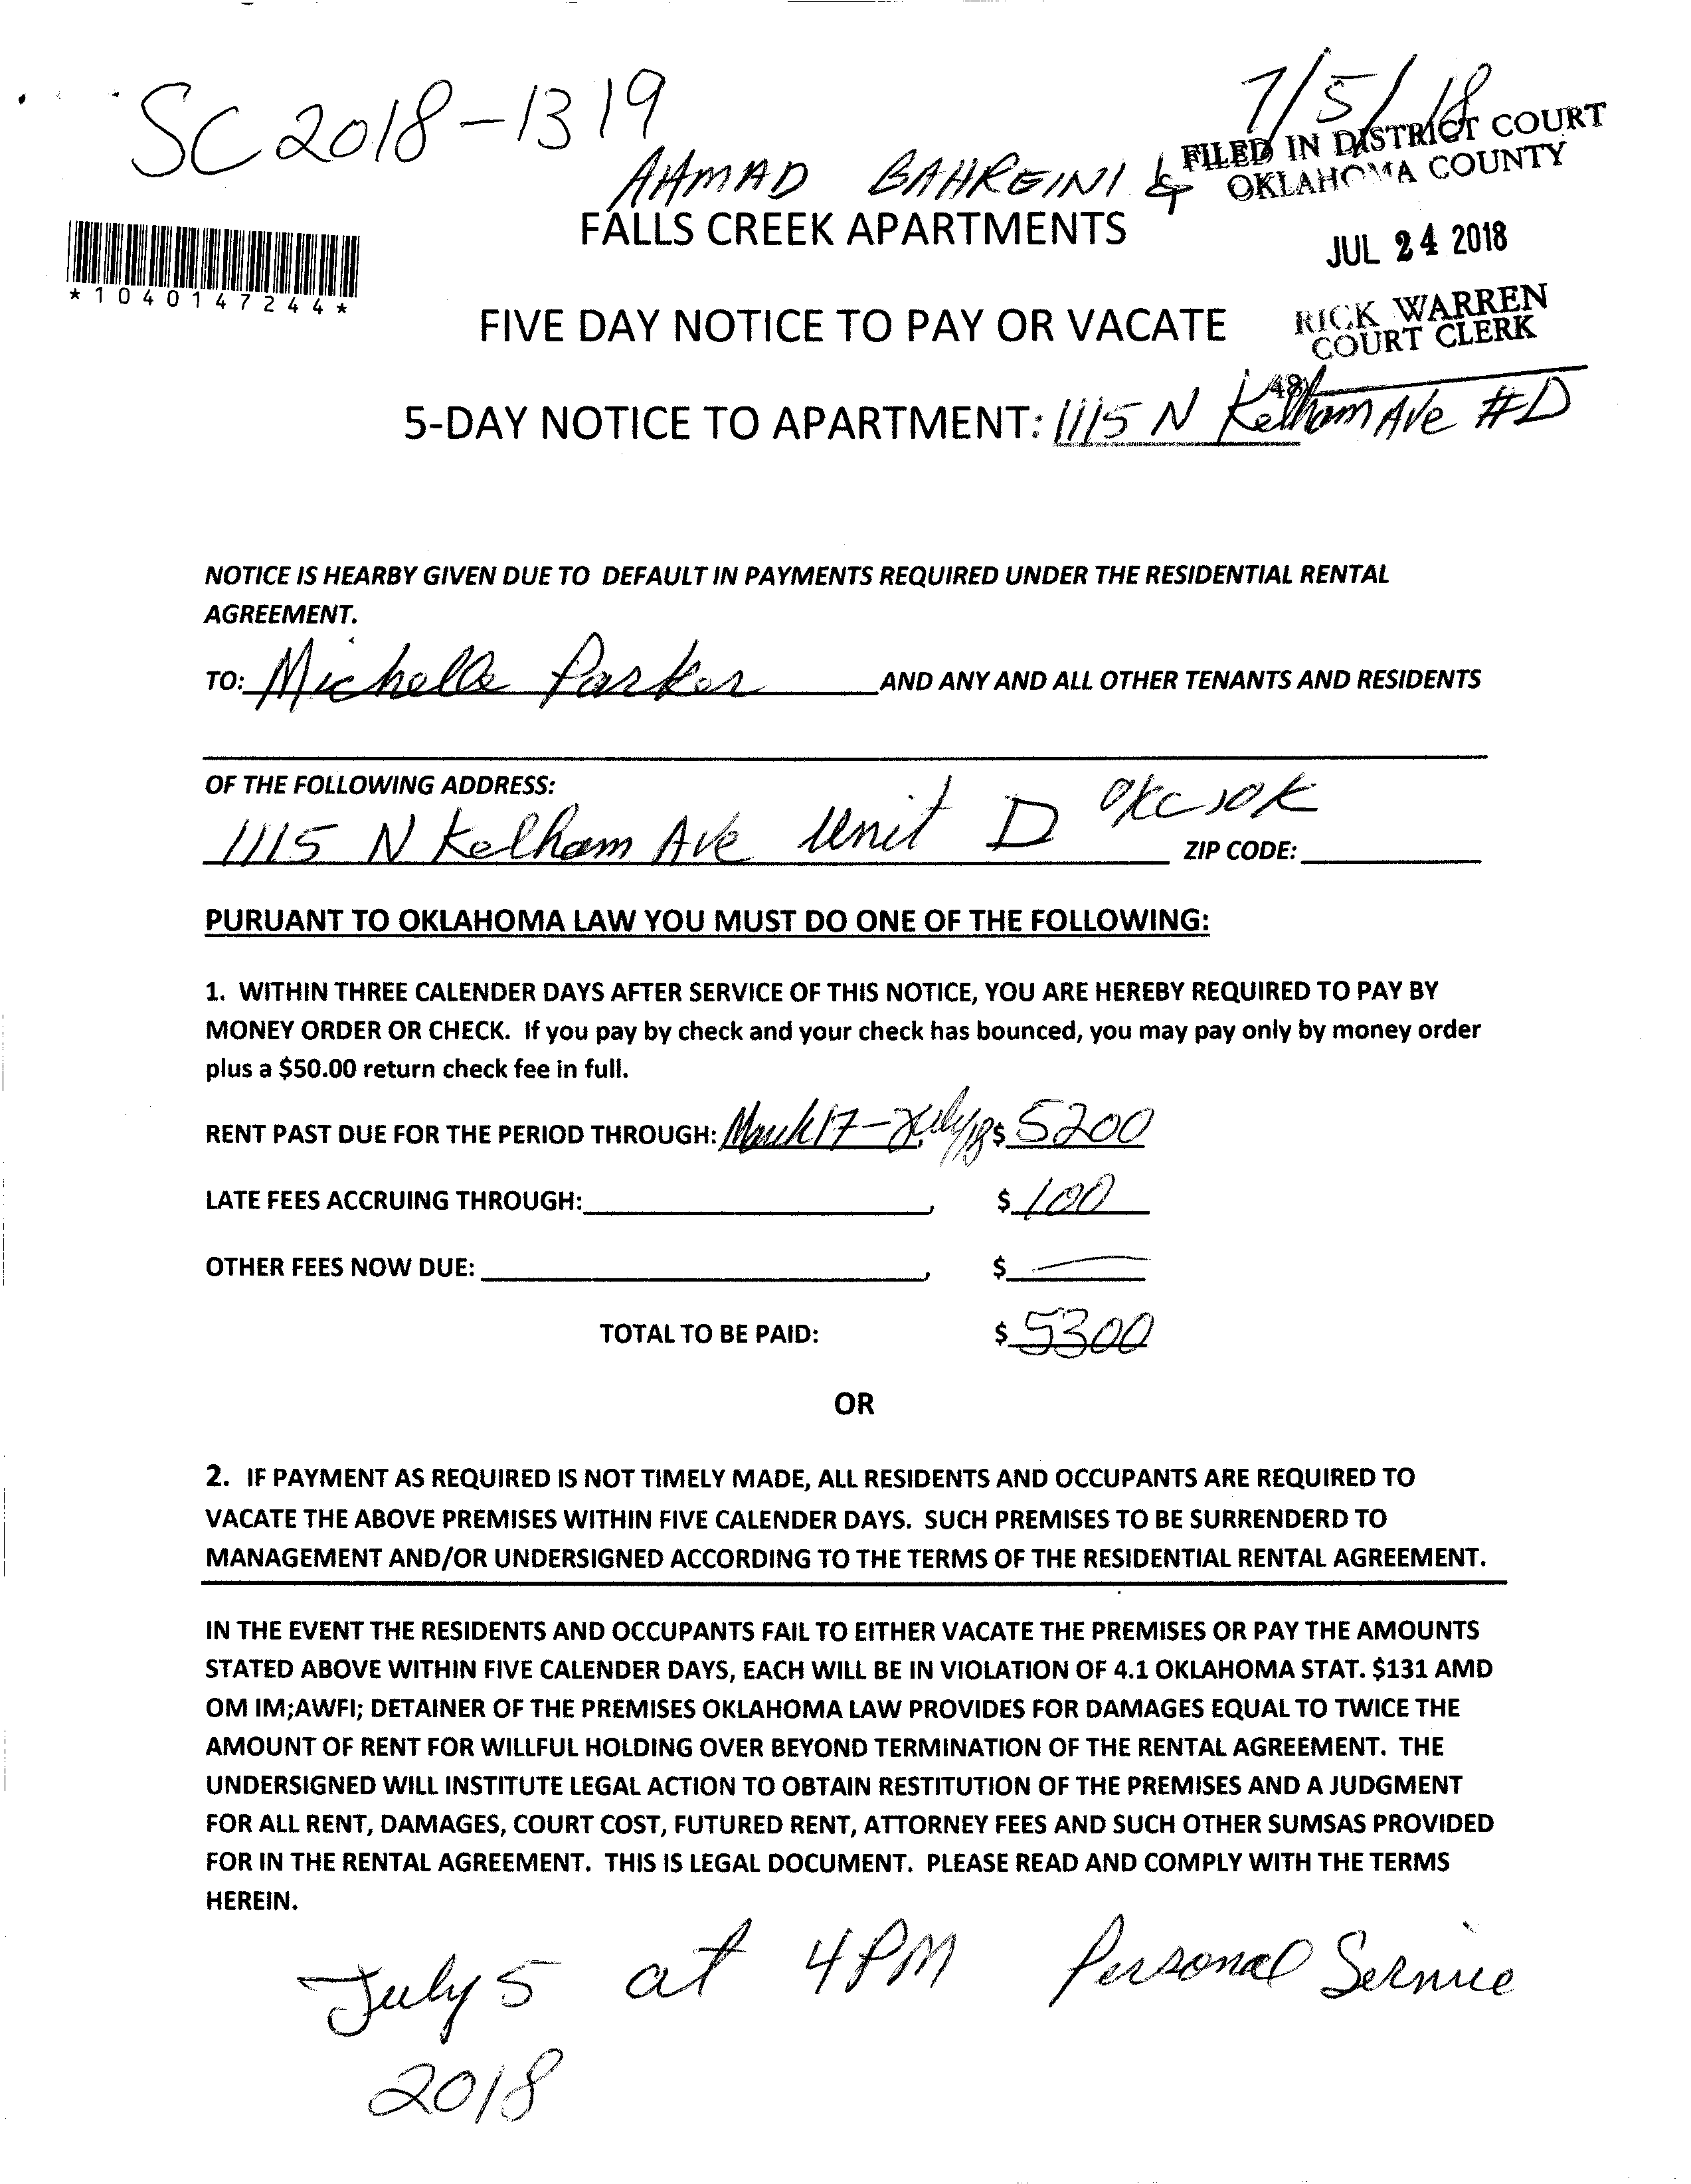 SC 2018-1319
7/5/18
FILED IN DISTRICT COURT
OKLAHOMA COUNTY
AHMAD BAHREINI &
FALLS CREEK APARTMENTS
JUL 24 2018
*1040147244*
FIVE DAY NOTICE TO PAY OR VACATE
RICK WARREN
COURT CLERK
48
5-DAY NOTICE TO APARTMENT: 1115 N Kelham Ave #D
NOTICE IS HEARBY GIVEN DUE TO DEFAULT IN PAYMENTS REQUIRED UNDER THE RESIDENTIAL RENTAL
AGREEMENT.
TO: Michelle Parker AND ANY AND ALL OTHER TENANTS AND RESIDENTS
OF THE FOLLOWING ADDRESS:
1115 N Kelham Ave Unit D OKC, OK ZIP CODE:
PURUANT TO OKLAHOMA LAW YOU MUST DO ONE OF THE FOLLOWING:
1. WITHIN THREE CALENDER DAYS AFTER SERVICE OF THIS NOTICE, YOU ARE HEREBY REQUIRED TO PAY BY
MONEY ORDER OR CHECK. If you pay by check and your check has bounced, you may pay only by money order
plus a $50.00 return check fee in full.
RENT PAST DUE FOR THE PERIOD THROUGH: March 17 - July, 18 $ 5200
LATE FEES ACCRUING THROUGH: , $ 100
OTHER FEES NOW DUE: , $ —
TOTAL TO BE PAID: $ 5300
OR
2. IF PAYMENT AS REQUIRED IS NOT TIMELY MADE, ALL RESIDENTS AND OCCUPANTS ARE REQUIRED TO
VACATE THE ABOVE PREMISES WITHIN FIVE CALENDER DAYS. SUCH PREMISES TO BE SURRENDERD TO
MANAGEMENT AND/OR UNDERSIGNED ACCORDING TO THE TERMS OF THE RESIDENTIAL RENTAL AGREEMENT.
IN THE EVENT THE RESIDENTS AND OCCUPANTS FAIL TO EITHER VACATE THE PREMISES OR PAY THE AMOUNTS
STATED ABOVE WITHIN FIVE CALENDER DAYS, EACH WILL BE IN VIOLATION OF 4.1 OKLAHOMA STAT. $131 AMD
OM IM;AWFI; DETAINER OF THE PREMISES OKLAHOMA LAW PROVIDES FOR DAMAGES EQUAL TO TWICE THE
AMOUNT OF RENT FOR WILLFUL HOLDING OVER BEYOND TERMINATION OF THE RENTAL AGREEMENT. THE
UNDERSIGNED WILL INSTITUTE LEGAL ACTION TO OBTAIN RESTITUTION OF THE PREMISES AND A JUDGMENT
FOR ALL RENT, DAMAGES, COURT COST, FUTURED RENT, ATTORNEY FEES AND SUCH OTHER SUMSAS PROVIDED
FOR IN THE RENTAL AGREEMENT. THIS IS LEGAL DOCUMENT. PLEASE READ AND COMPLY WITH THE TERMS
HEREIN.
July 5 at 4 PM Personal Service
2018